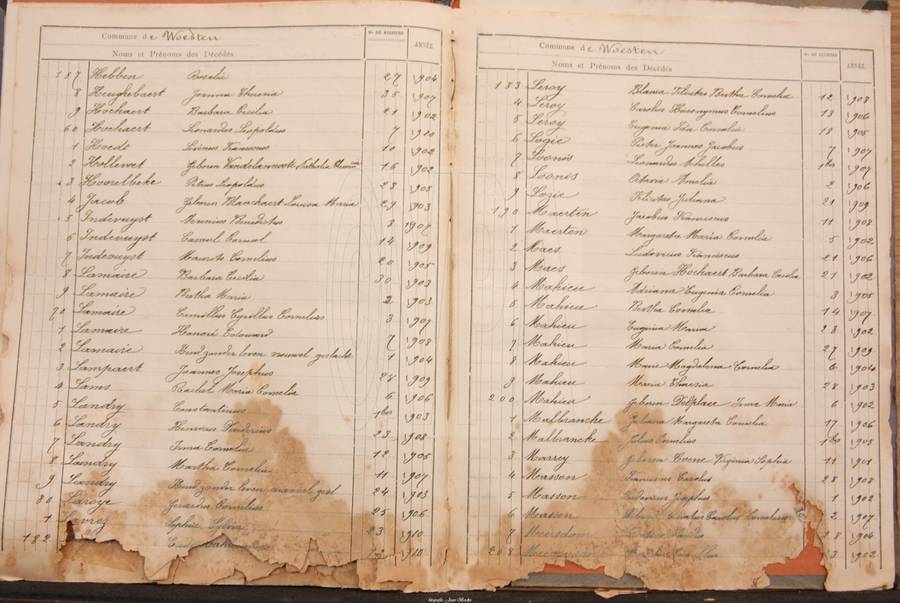 Commune de Woesten
Noms et Prénoms des Décédés
Nos DE REGISTRE
ANNÉE.
157 Hebben Rosalie 27 1904
8 Heughebaert Joanna Theresia 35 1907
9 Horhaert Barbara Cecilia 21 1902
60 Horhaert Leonardus Leopoldus 7 1910
1 Hoedt 10 1902
2 Hollevoet Geboren 16 1902
3 Hoorelbeke Petrus Leopoldus 23 1908
4 Jacob Geboren Louisa Maria 29 1903
5 Indevuyst Benedictus 3 1907
6 Indevuyst Camiel 14 1909
7 Indevuyst Maurits Cornelius 20 1905
8 Lamaire Barbara Cecilia 30 1903
9 Lamaire Bertha Maria 2 1903
70 Lamaire Cyrillus Cornelius 3 1907
1 Lamaire Honoré Edouard 7 1908
2 Lamaire Kind zonder leven 1 1904
3 Lampaert Joannes Josephus 24 1909
4 Lams Rachel Maria Cornelia 6 1906
5 Landry Constantinus 1bis 1903
6 Landry Henricus 23 1908
7 Landry Irma Cornelia 12 1906
8 Landry Martha Cornelia 11 1907
9 Landry Kind zonder leven 24 1903
80 Laroye Gerardus Cornelius 25 1906
1 Sophie Sylvia 23 1910
182 12 1910
Commune de Woesten
Noms et Prénoms des Décédés
Nos DE REGISTRE
ANNÉE.
183 Leroy Blanca Bertha Cornelia 12 1908
4 Leroy Carolus Hieronymus Cornelius 13 1906
5 Leroy Eugenia Ida Cornelia 18 1905
6 Logie Pieter Joannes Jacobus 7 1907
7 Loonis Leonardus Achilles 1bis 1907
8 Loonis Octavia Amelia 2 1906
9 Lozie Juliana 21 1909
190 Maerten Jacobus Franciscus 11 1908
1 Maerten Margaretha Maria Cornelia 5 1902
2 Maes Ludovicus Franciscus 21 1906
3 Maes Geboren Horhaert Barbara Cecilia 21 1902
4 Mahieu Adriana Eugenia Cornelia 3 1905
5 Mahieu Bertha Cornelia 14 1907
6 Mahieu Eugenia Maria 28 1902
7 Mahieu Maria Cornelia 27 1909
8 Mahieu Marie Magdalena Cornelia 6 1904
9 Mahieu Maria Theresia 28 1903
200 Mahieu Geboren Delplace Irma Maria 6 1902
1 Malbrancke Juliana Margaretha Cornelia 17 1906
2 Malbrancke Julius Cornelius 1bis 1905
3 Marrey Geboren Coene Virginia Sophia 11 1901
4 Masson Franciscus Carolus 28 1908
5 Masson Josephus 1 1902
6 Masson Carolus Cornelius 2 1907
7 Meersdom 8 1904
208 3 1902